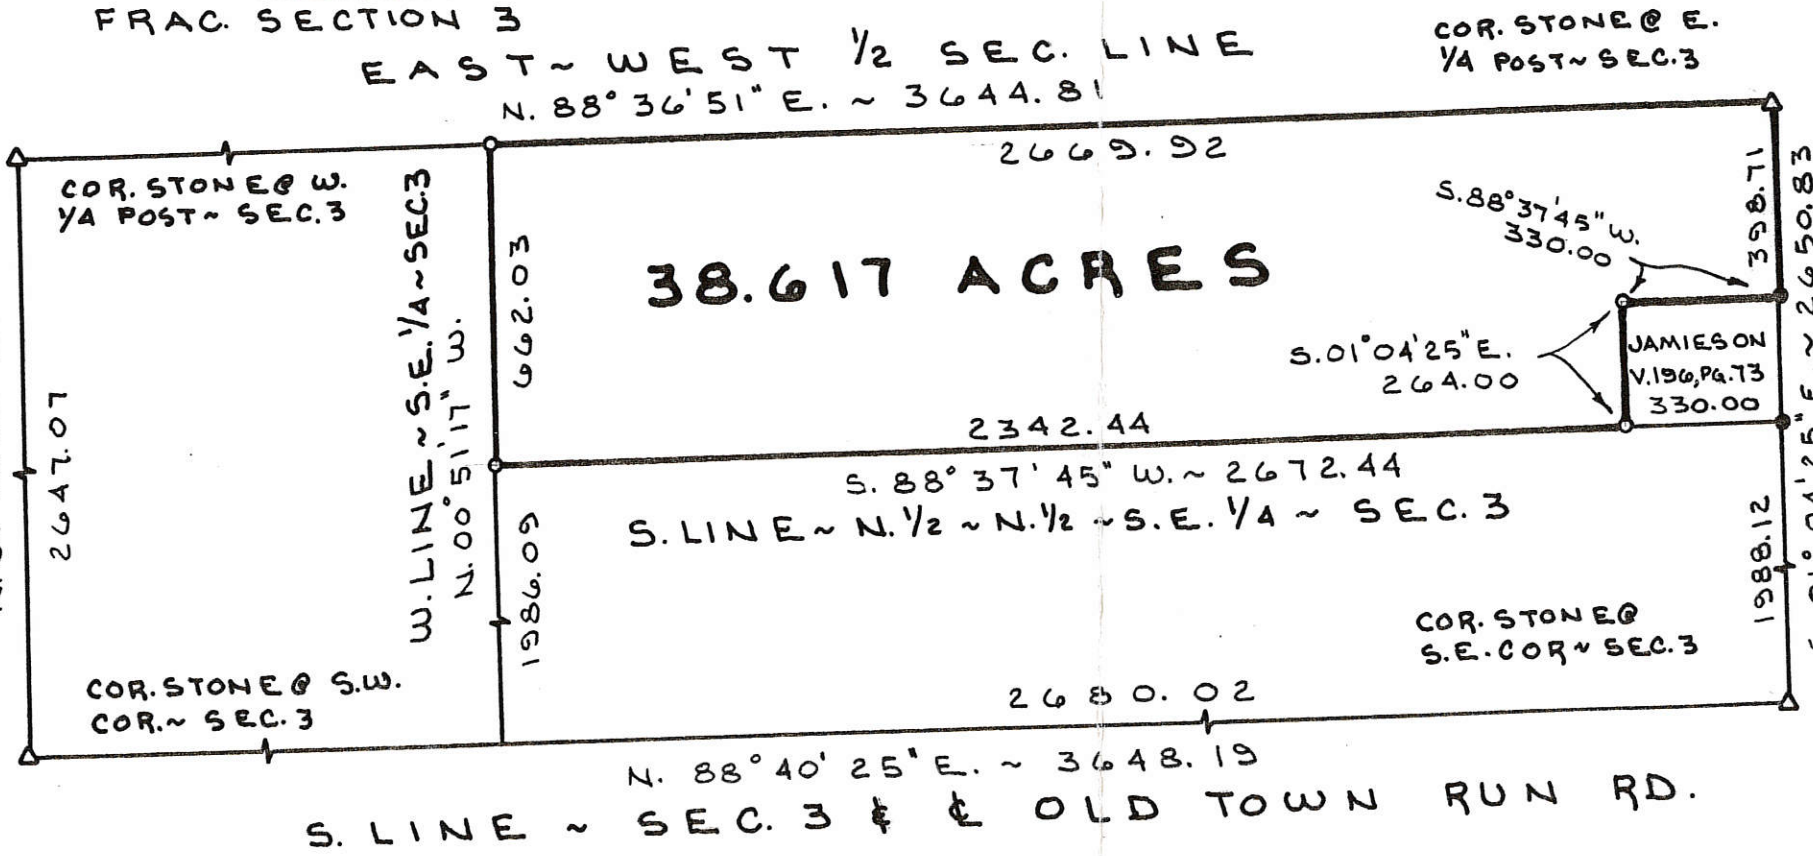 FRAC. SECTION 3
EAST ~ WEST 1/2 SEC. LINE
N. 88° 36' 51" E. ~ 3644.81
COR. STONE @ E.
1/4 POST ~ SEC. 3
2669.92
COR. STONE @ W.
1/4 POST ~ SEC. 3
W. LINE ~ S.E. 1/4 ~ SEC. 3
N. 00° 51' 17" W.
662.03
38.617 ACRES
S. 88° 37' 45" W.
330.00
398.71
2650.83
S. 01° 04' 25" E.
264.00
JAMIESON
V. 196, PG. 73
330.00
2647.07
2342.44
S. 88° 37' 45" W. ~ 2672.44
S. LINE ~ N. 1/2 ~ N. 1/2 ~ S.E. 1/4 ~ SEC. 3
1986.09
1988.12
COR. STONE @
S.E. COR ~ SEC. 3
COR. STONE @ S.W.
COR. ~ SEC. 3
2680.02
N. 88° 40' 25" E. ~ 3648.19
S. LINE ~ SEC. 3 & ℄ OLD TOWN RUN RD.